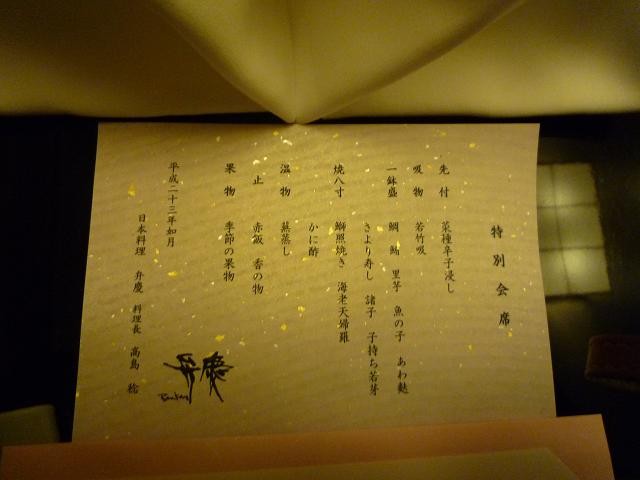 特別会席
先付 菜種辛子浸し
吸物 若竹吸
一鉢盛 鯛 鮪 里芋 魚の子 あわ麩
さより寿し 諸子 子持ち若芽
焼八寸 鰤照焼き 海老天婦羅
かに酢
温物 蕪蒸し
止 赤飯 香の物
果物 季節の果物
平成二十三年如月
日本料理 弁慶 料理長 高島 稔
弁慶
Benkay